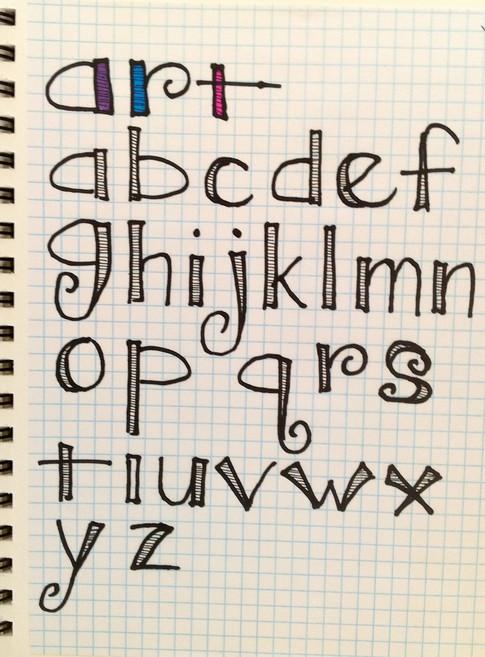 art
abcdef
ghijklmn
opqrs
tıuvwx
yz